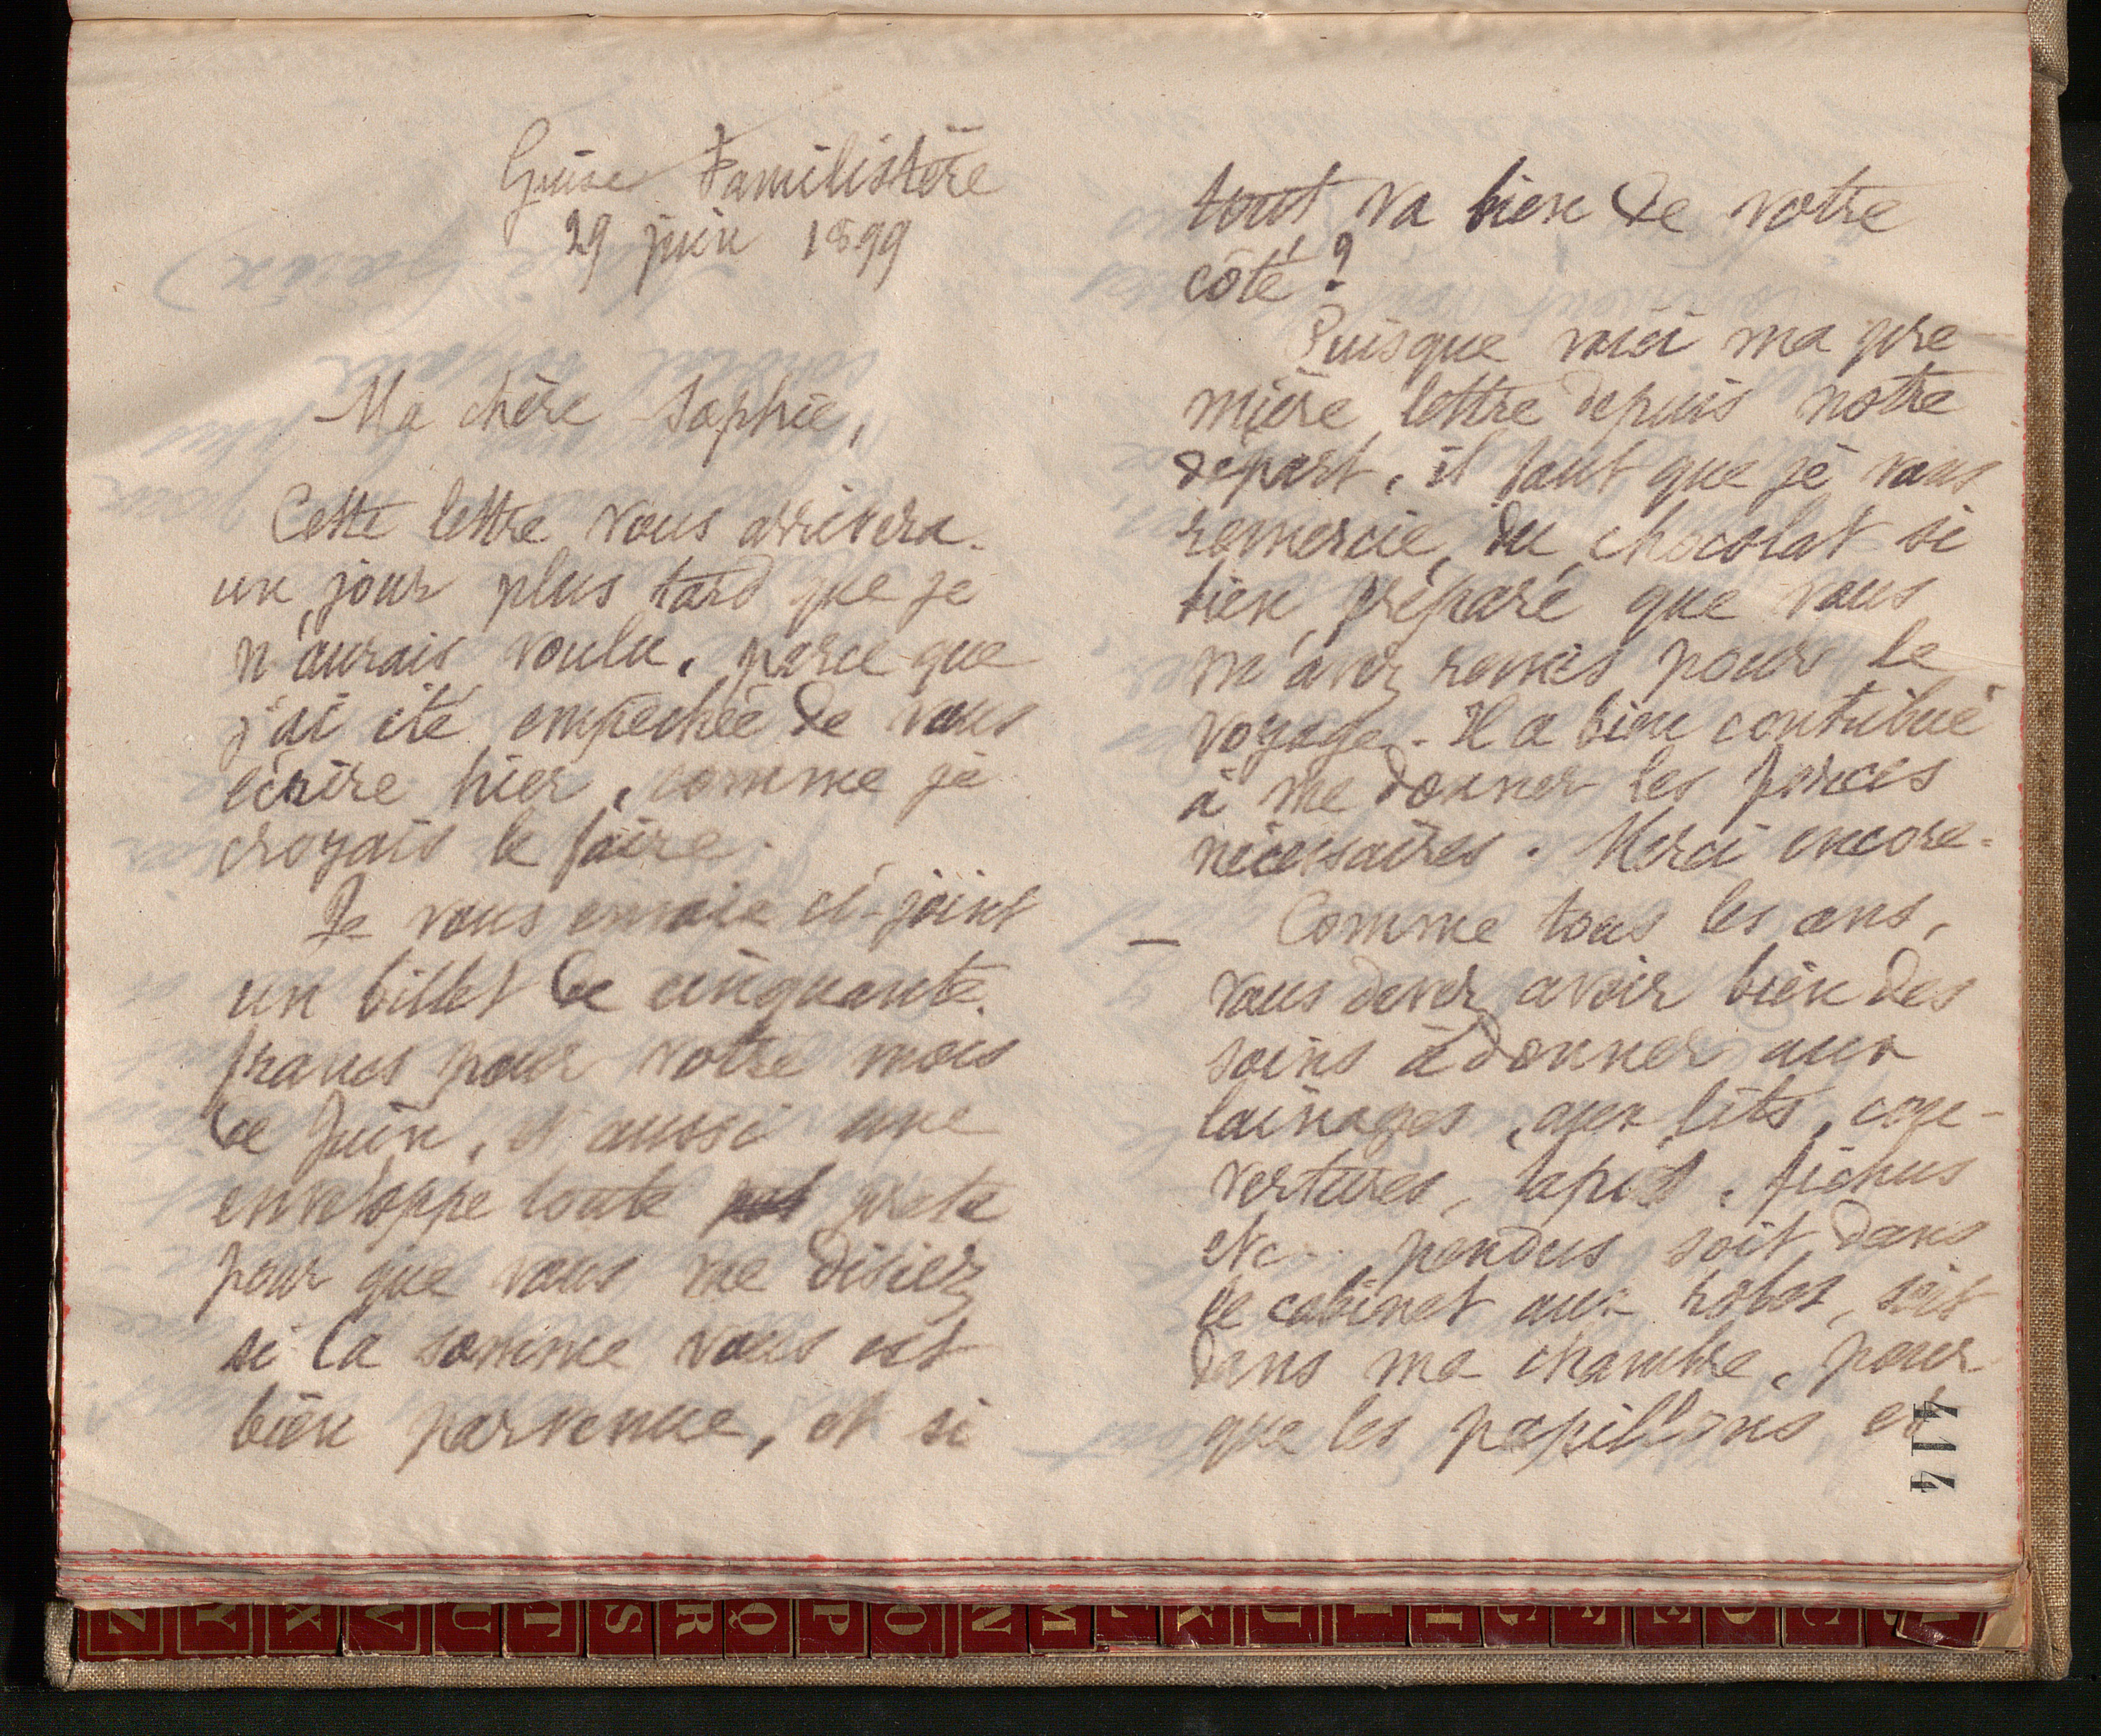 Guise Familistère
29 juin 1899
Ma chère Sophie,
Cette lettre vous arrivera
un jour plus tard que je
n'aurais voulu, parce que
j'ai été empêchée de vous
écrire hier, comme je
croyais le faire.
Je vous envoie ci-joint
un billet de cinquante
francs pour votre mois
de Juin, et aussi une
enveloppe toute prête
pour que vous me disiez
si la somme vous est
bien parvenue, et si
tout va bien de votre
côté ?
Puisque voici ma pre
mière lettre depuis notre
départ, il faut que je vous
remercie du chocolat si
bien préparé que vous
m'avez remis pour le
voyage. Il a bien contribué
à me donner les forces
nécessaires. Merci encore.
— Comme tous les ans,
vous devez avoir bien des
soins à donner aux
lainages, aux lits, cou-
vertures, tapis, fichus
etc.. pendus soit dans
le cabinet aux robes, soit
dans ma chambre, pour
que les papillons et
414
Z Y X V U T S R Q P O N M L K J I H G F E D C B A